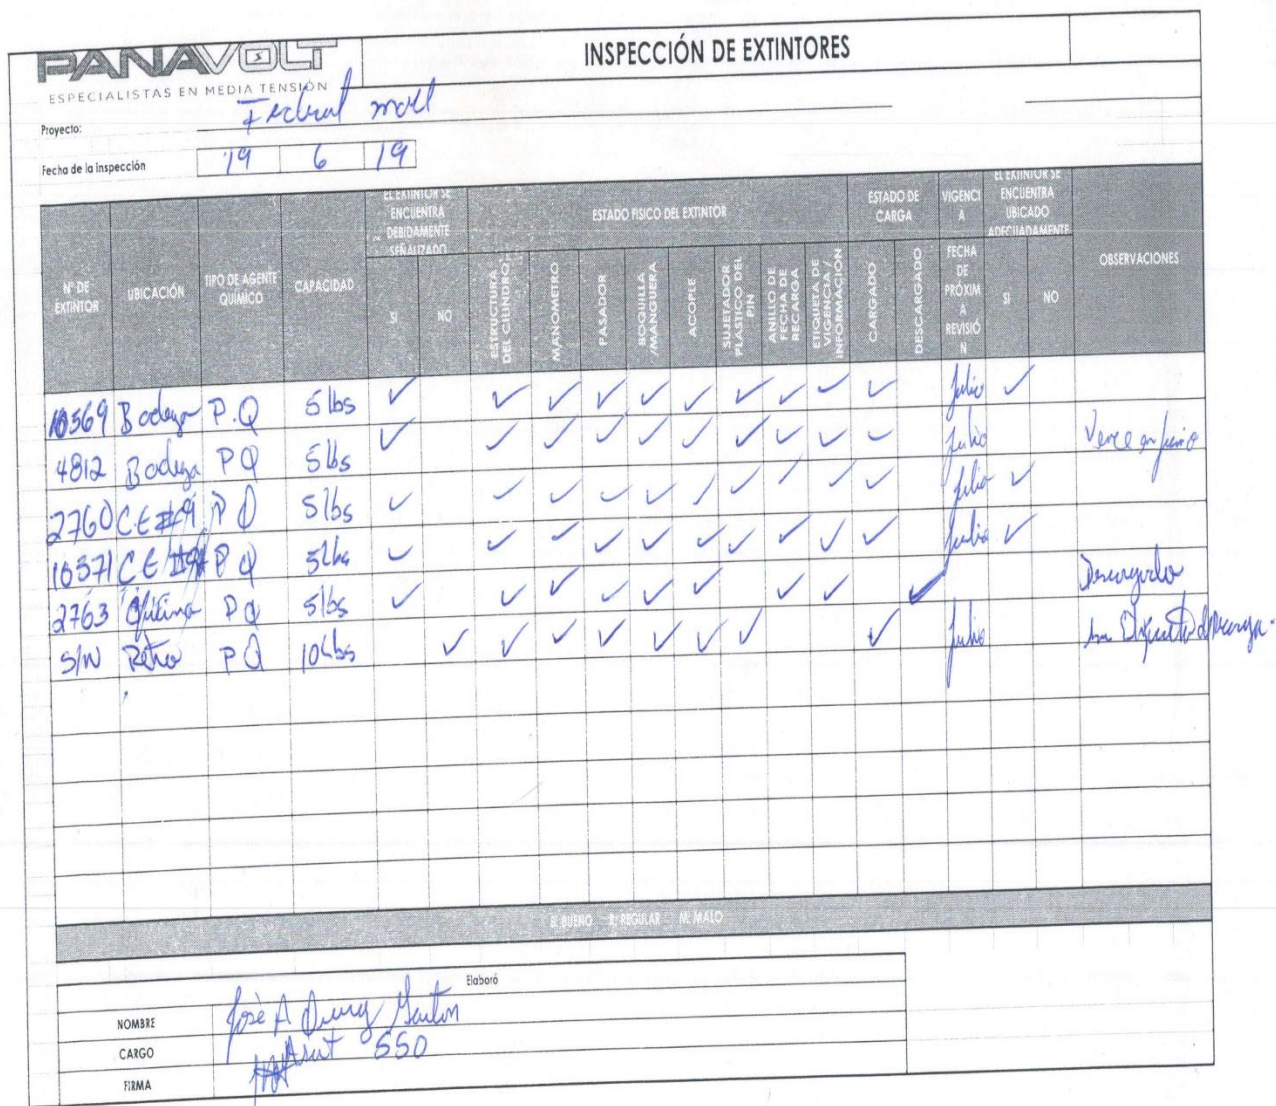 PANAVOLT
ESPECIALISTAS EN MEDIA TENSIÓN
INSPECCIÓN DE EXTINTORES
Proyecto: Federal mall
Fecha de la inspección 19 6 19
Nº DE EXTINTOR
UBICACIÓN
TIPO DE AGENTE QUÍMICO
CAPACIDAD
EL EXTINTOR SE ENCUENTRA DEBIDAMENTE SEÑALIZADO
SI
NO
ESTADO FISICO DEL EXTINTOR
ESTRUCTURA DEL CILINDRO
MANOMETRO
PASADOR
BOQUILLA /MANGUERA
ACOPLE
SUJETADOR PLASTICO DEL PIN
ANILLO DE FECHA DE RECARGA
ETIQUETA DE VIGENCIA / INFORMACION
ESTADO DE CARGA
CARGADO
DESCARGADO
VIGENCIA
FECHA DE PRÓXIMA REVISIÓN
EL EXTINTOR SE ENCUENTRA UBICADO ADECUADAMENTE
SI
NO
OBSERVACIONES
10569 Bodega P.Q 5 lbs ✓ ✓ ✓ ✓ ✓ ✓ ✓ ✓ ✓ ✓ Julio ✓
4812 Bodega PQ 5 lbs ✓ ✓ ✓ ✓ ✓ ✓ ✓ ✓ ✓ ✓ Julio Vence en junio
2760 C.E #9 PQ 5 lbs ✓ ✓ ✓ ✓ ✓ ✓ ✓ ✓ ✓ ✓ Julio ✓
10371 C E PQ 5 lbs ✓ ✓ ✓ ✓ ✓ ✓ ✓ ✓ ✓ ✓ Julio ✓
2763 Oficina PQ 5 lbs ✓ ✓ ✓ ✓ ✓ ✓ ✓ ✓ ✓ Descargado
S/N Retro PQ 10 Lbs ✓ ✓ ✓ ✓ ✓ ✓ ✓ ✓ Julio
B: BUENO R: REGULAR M: MALO
Elaboró
NOMBRE José A
CARGO 550
FIRMA